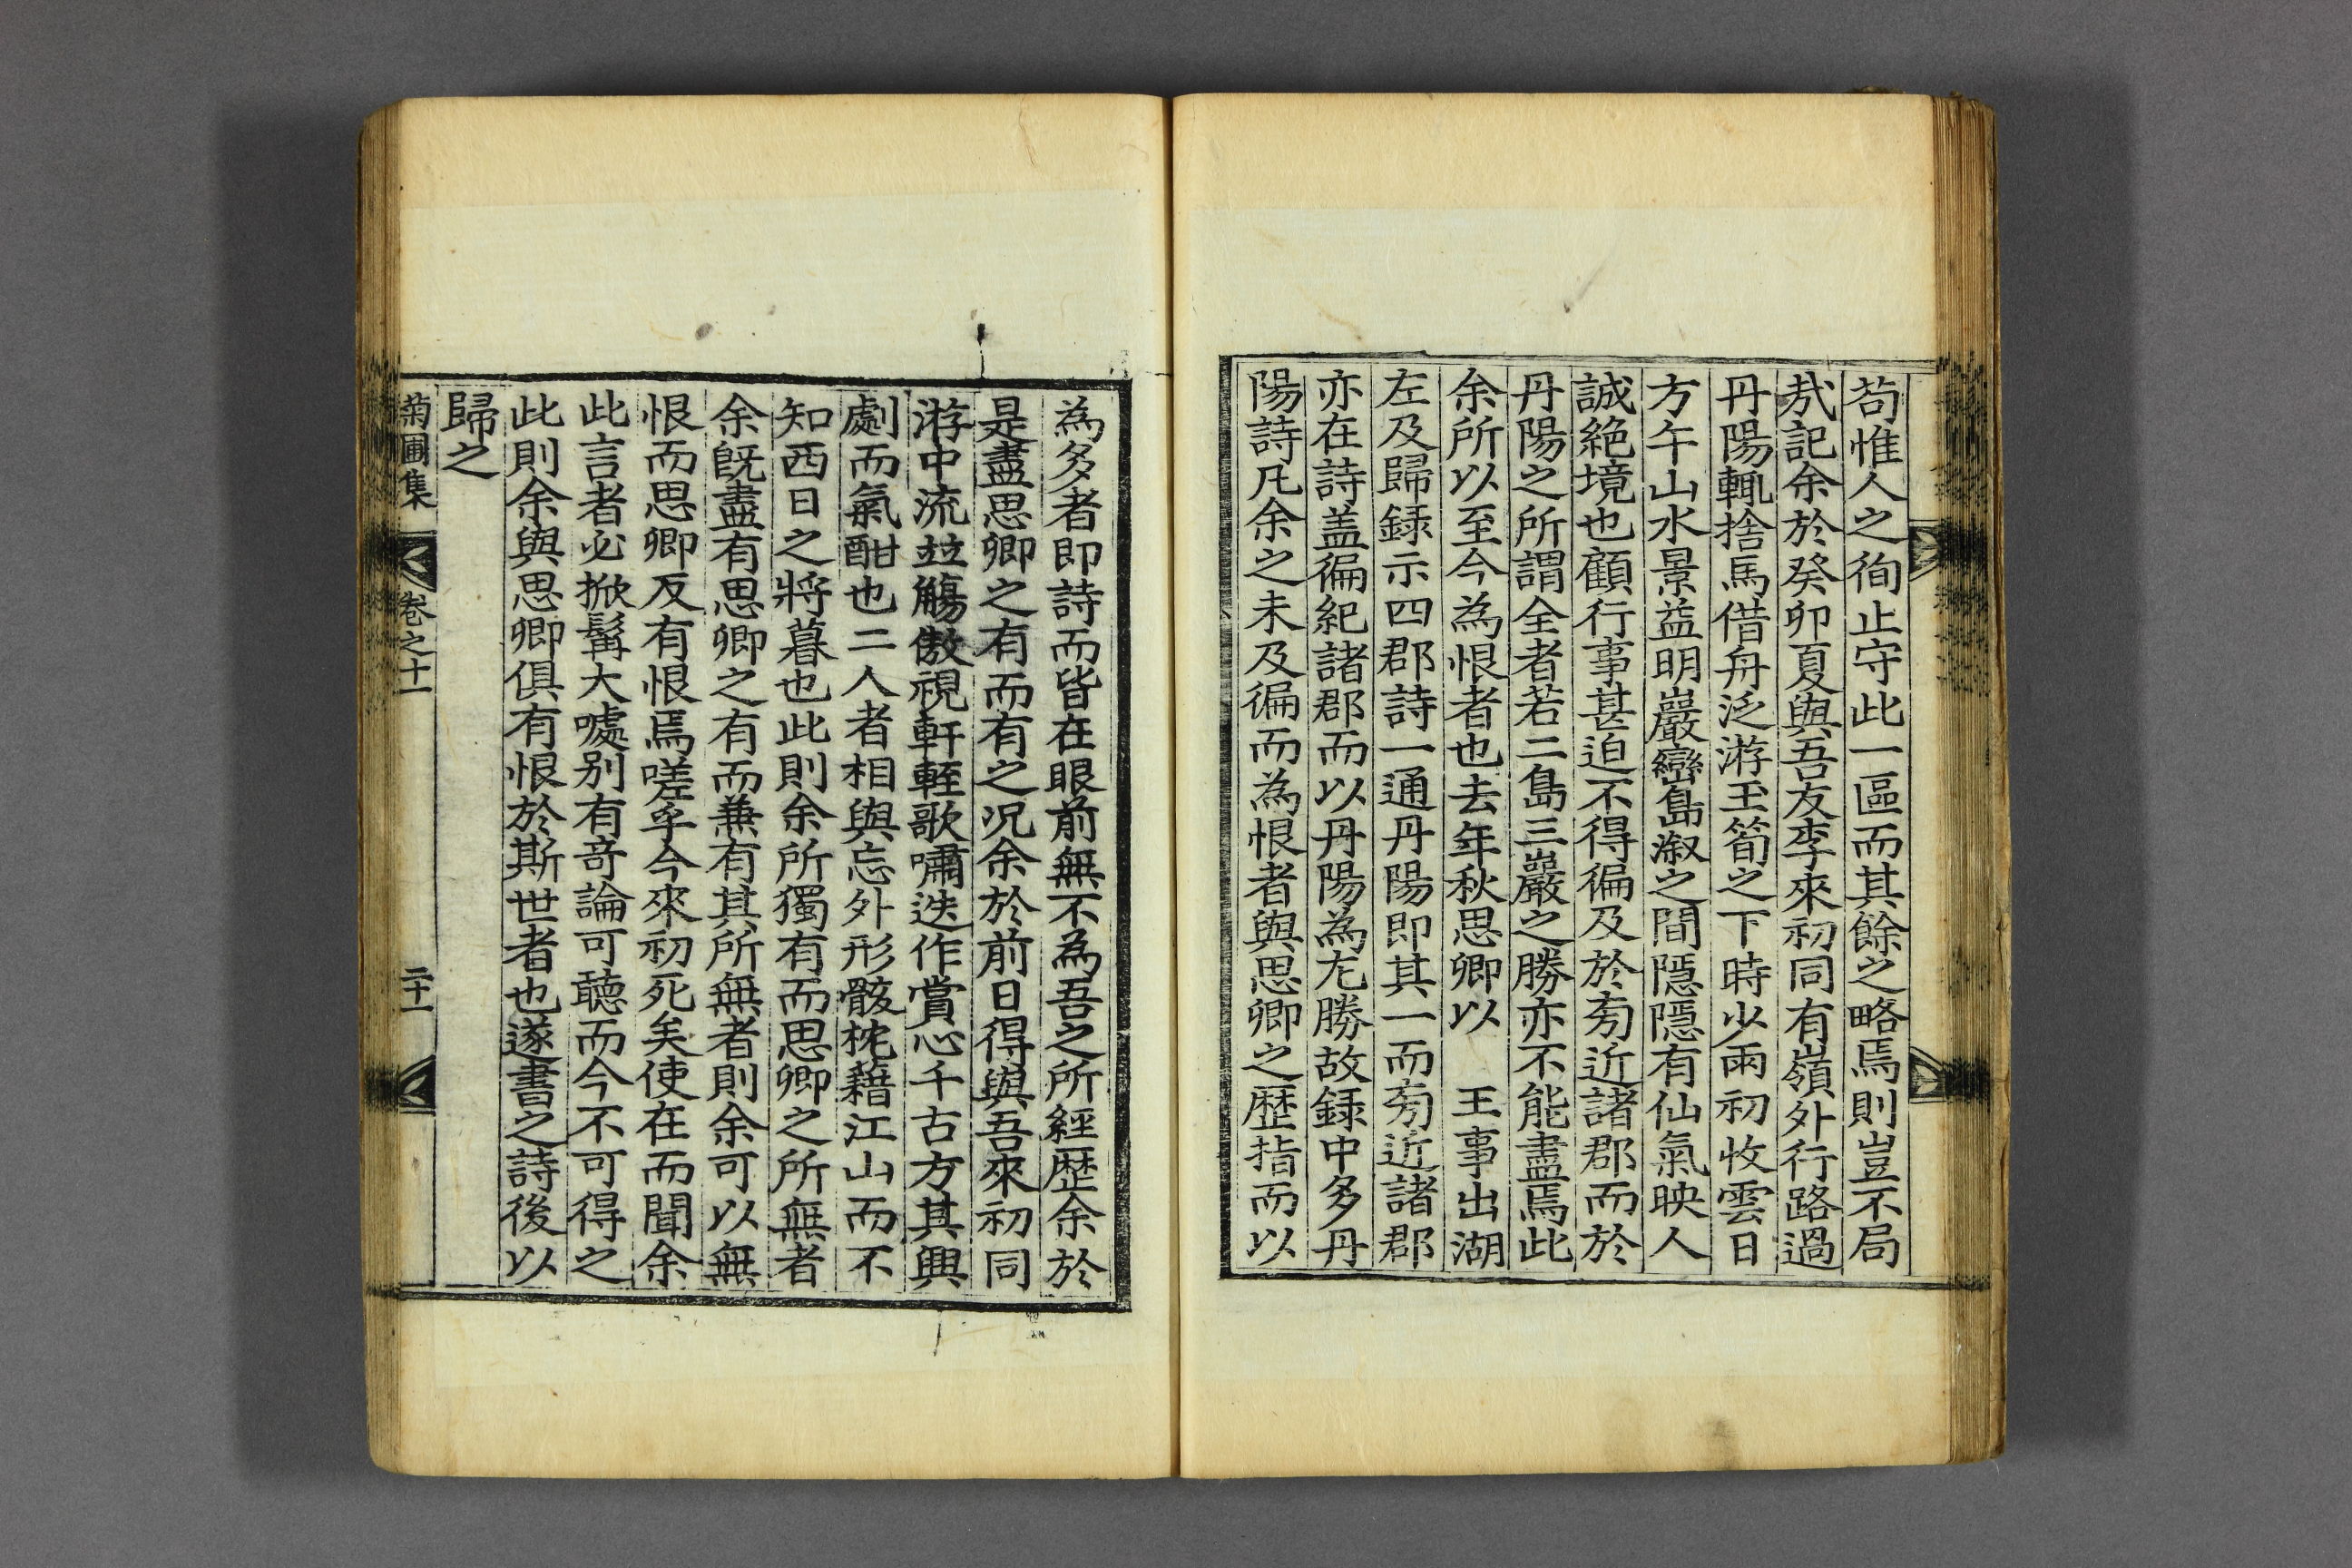 苟惟人之徇止守此一區而其餘之略焉則豈不局
㢤記余於癸卯夏與吾友李來初同有嶺外行路過
丹陽輒捨馬借舟泛游玉筍之下時少雨初收雲日
方午山水景益明巖巒島溆之間隱隱有仙氣映人
誠絶境也顧行事甚迫不得徧及於旁近諸郡而於
丹陽之所謂全者若二島三巖之勝亦不能盡焉此
余所以至今為恨者也去年秋思卿以　王事出湖
左及歸録示四郡詩一通丹陽即其一而旁近諸郡
亦在詩盖徧紀諸郡而以丹陽為尤勝故録中多丹
陽詩凡余之未及徧而為恨者與思卿之歷指而以
為多者即詩而皆在眼前無不為吾之所經歷余於
是盡思卿之有而有之况余於前日得與吾來初同
游中流並觴傲視軒輊歌嘯迭作賞心千古方其興
劇而氣酣也二人者相與忘外形骸枕藉江山而不
知西日之將暮也此則余所獨有而思卿之所無者
余既盡有思卿之有而兼有其所無者則余可以無
恨而思卿反有恨焉嗟乎今來初死矣使在而聞余
此言者必掀髯大噱别有竒論可聽而今不可得之
此則余與思卿俱有恨於斯世者也遂書之詩後以
歸之
菊圃集　卷之十一　二十一